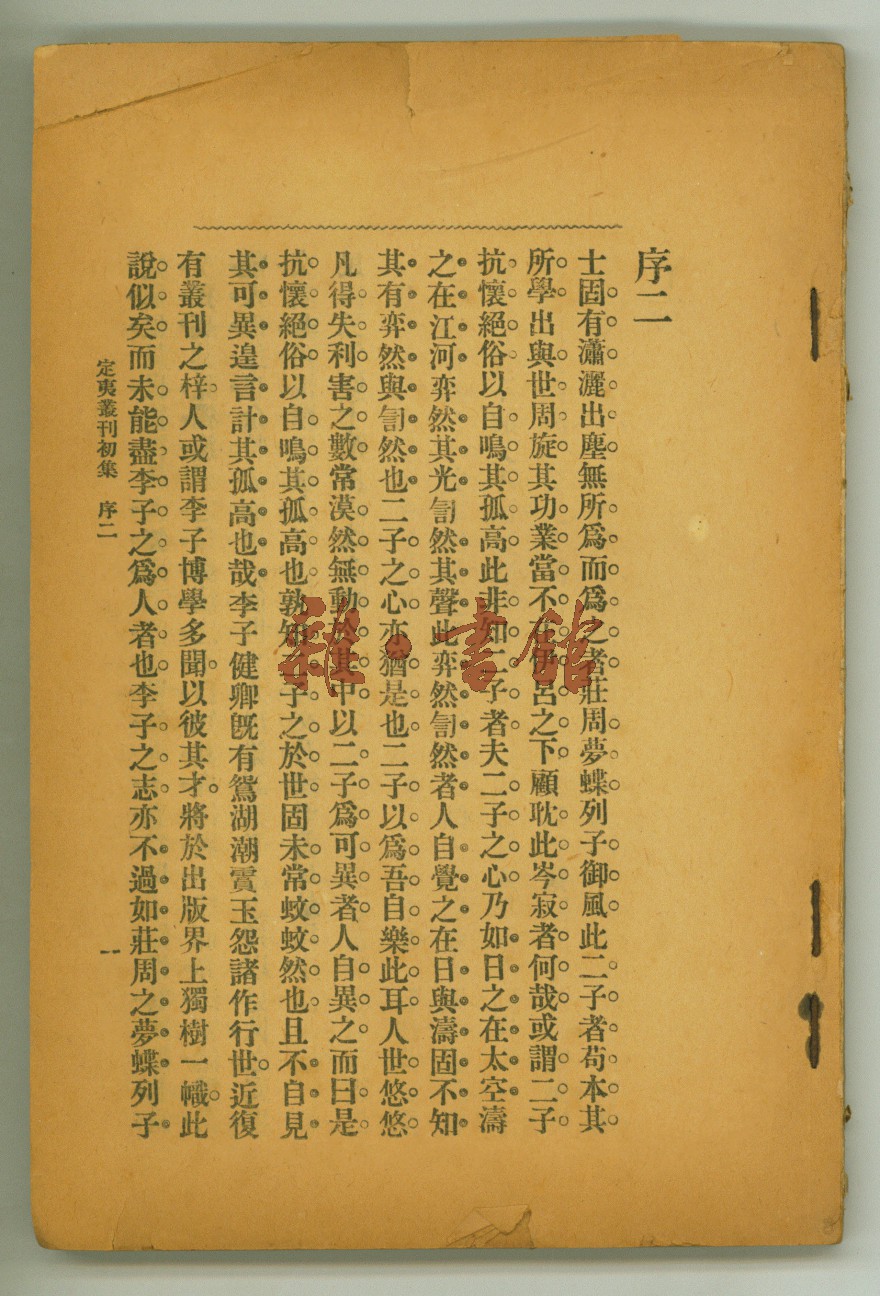 序二
士固有瀟灑出塵無所爲而爲之者莊周夢蝶列子御風此二子者苟本其
所學出與世周旋其功業當不在伊呂之下顧耽此岑寂者何哉或謂二子
抗懷絕俗以自鳴其孤高此非知二子者夫二子之心乃如日之在太空濤
之在江河弈然其光訇然其聲此弈然訇然者人自覺之在日與濤固不知
其有弈然與訇然也二子之心亦猶是也二子以爲吾自樂此耳人世悠悠
凡得失利害之數常漠然無動於其中以二子爲可異者人自異之而曰是
抗懷絕俗以自鳴其孤高也孰知二子之於世固未常蚊蚊然也且不自見
其可異遑言計其孤高也哉李子健卿旣有鴛湖潮霣玉怨諸作行世近復
有叢刊之梓人或謂李子博學多聞以彼其才將於出版界上獨樹一幟此
說似矣而未能盡李子之爲人者也李子之志亦不過如莊周之夢蝶列子
定夷叢刊初集 序二
一
雜·書館